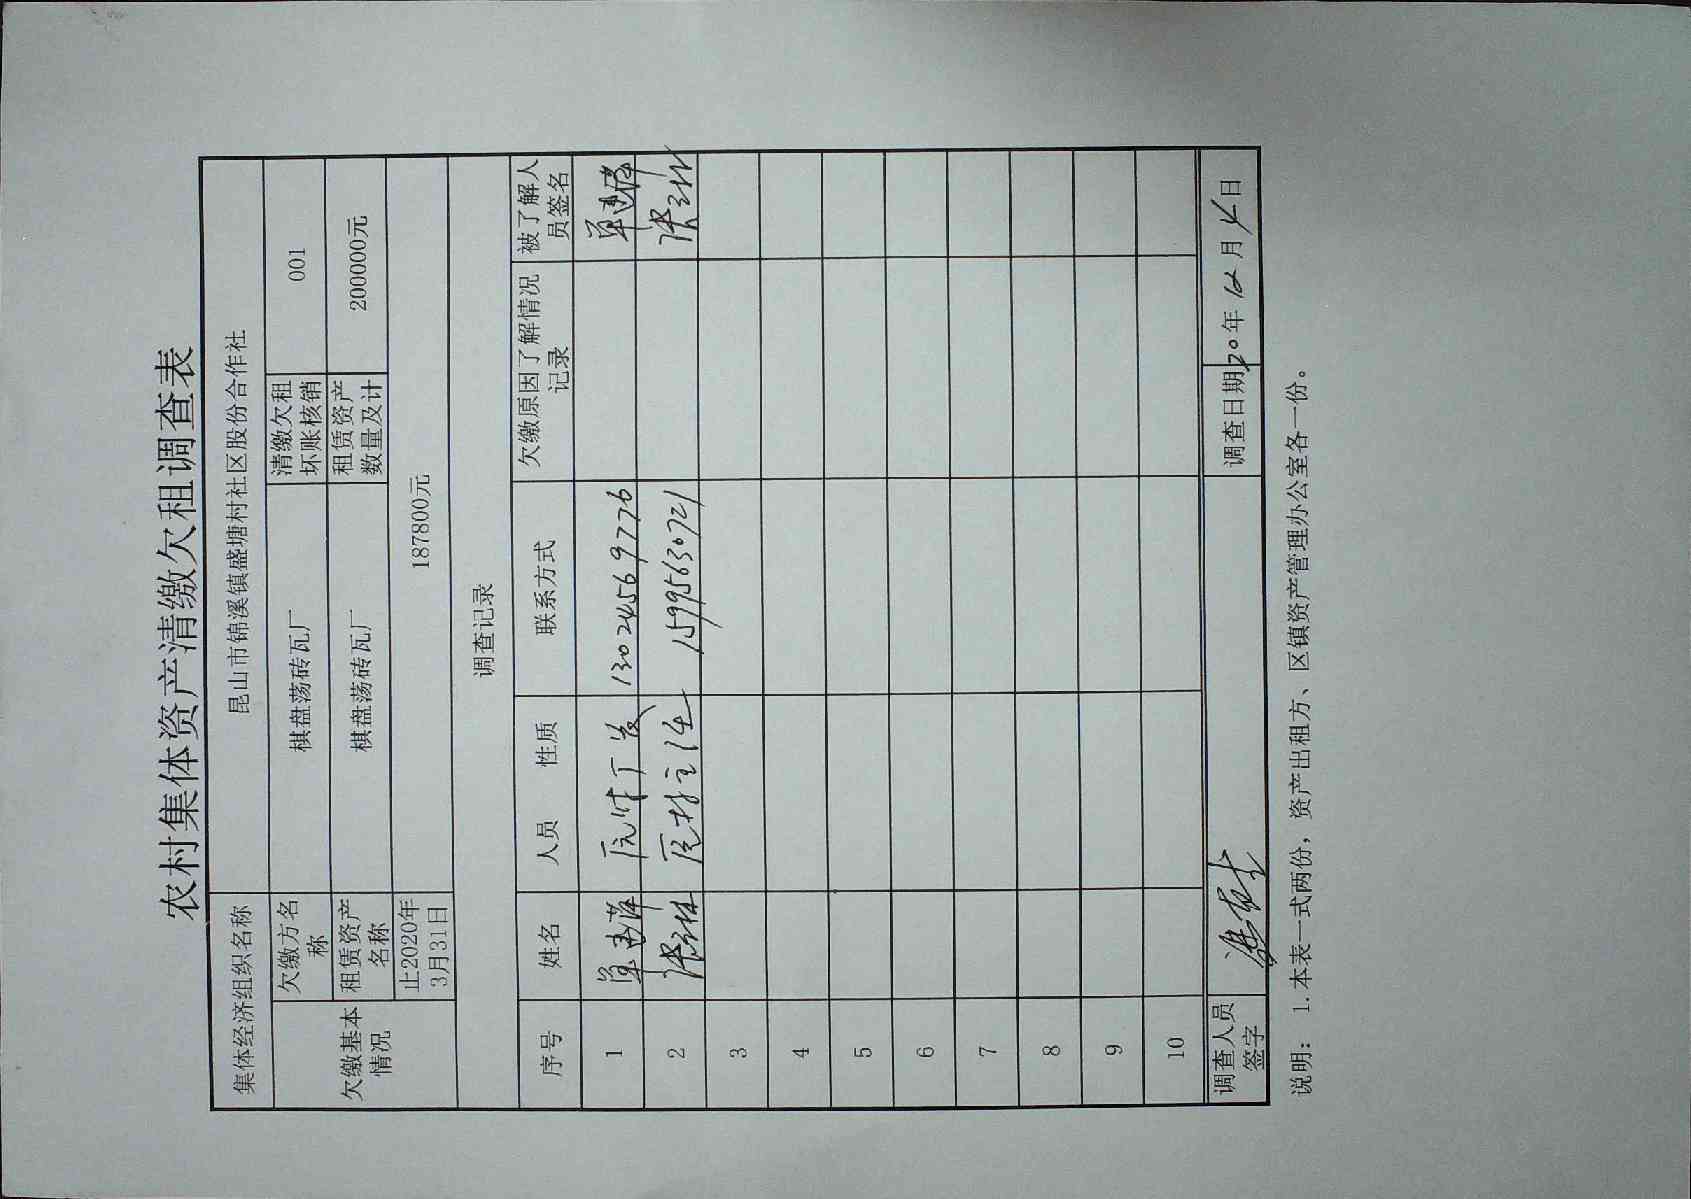 农村集体资产清缴欠租调查表
集体经济组织名称 昆山市锦溪镇盛塘村社区股份合作社
欠缴基本情况
欠缴方名称 棋盘荡砖瓦厂 清缴欠租坏账核销 001
租赁资产名称 棋盘荡砖瓦厂 租赁资产数量及计 200000元
止2020年3月31日 187800元
调查记录
序号 姓名 人员 性质 联系方式 欠缴原因了解情况记录 被了解人员签名
1 13024569776
2 原村主任 15995630721
3
4
5
6
7
8
9
10
调查人员签字 调查日期 20年12月4日
说明：1.本表一式两份，资产出租方、区镇资产管理办公室各一份。